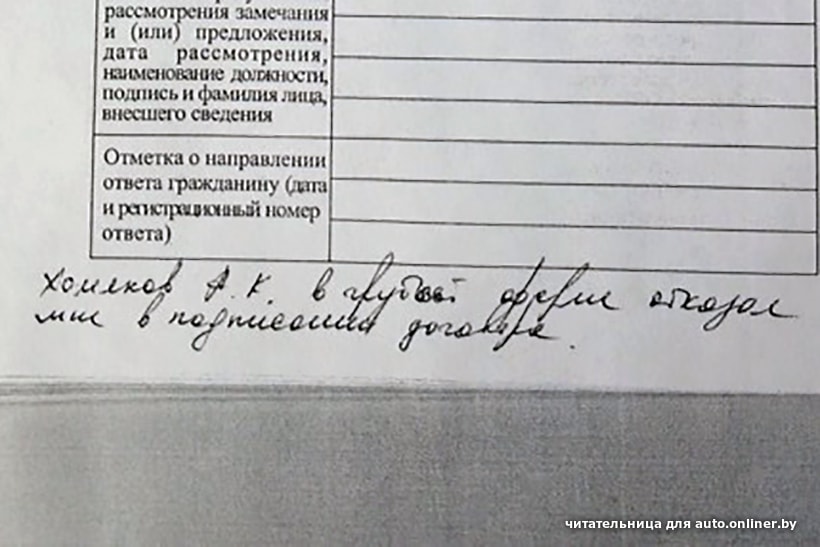 рассмотрения замечания
и (или) предложения,
дата рассмотрения,
наименование должности,
подпись и фамилия лица,
внесшего сведения
Отметка о направлении
ответа гражданину (дата
и регистрационный номер
ответа)
Хомяков А. К. в грубой форме отказал
мне в подписании договора.
читательница для auto.onliner.by